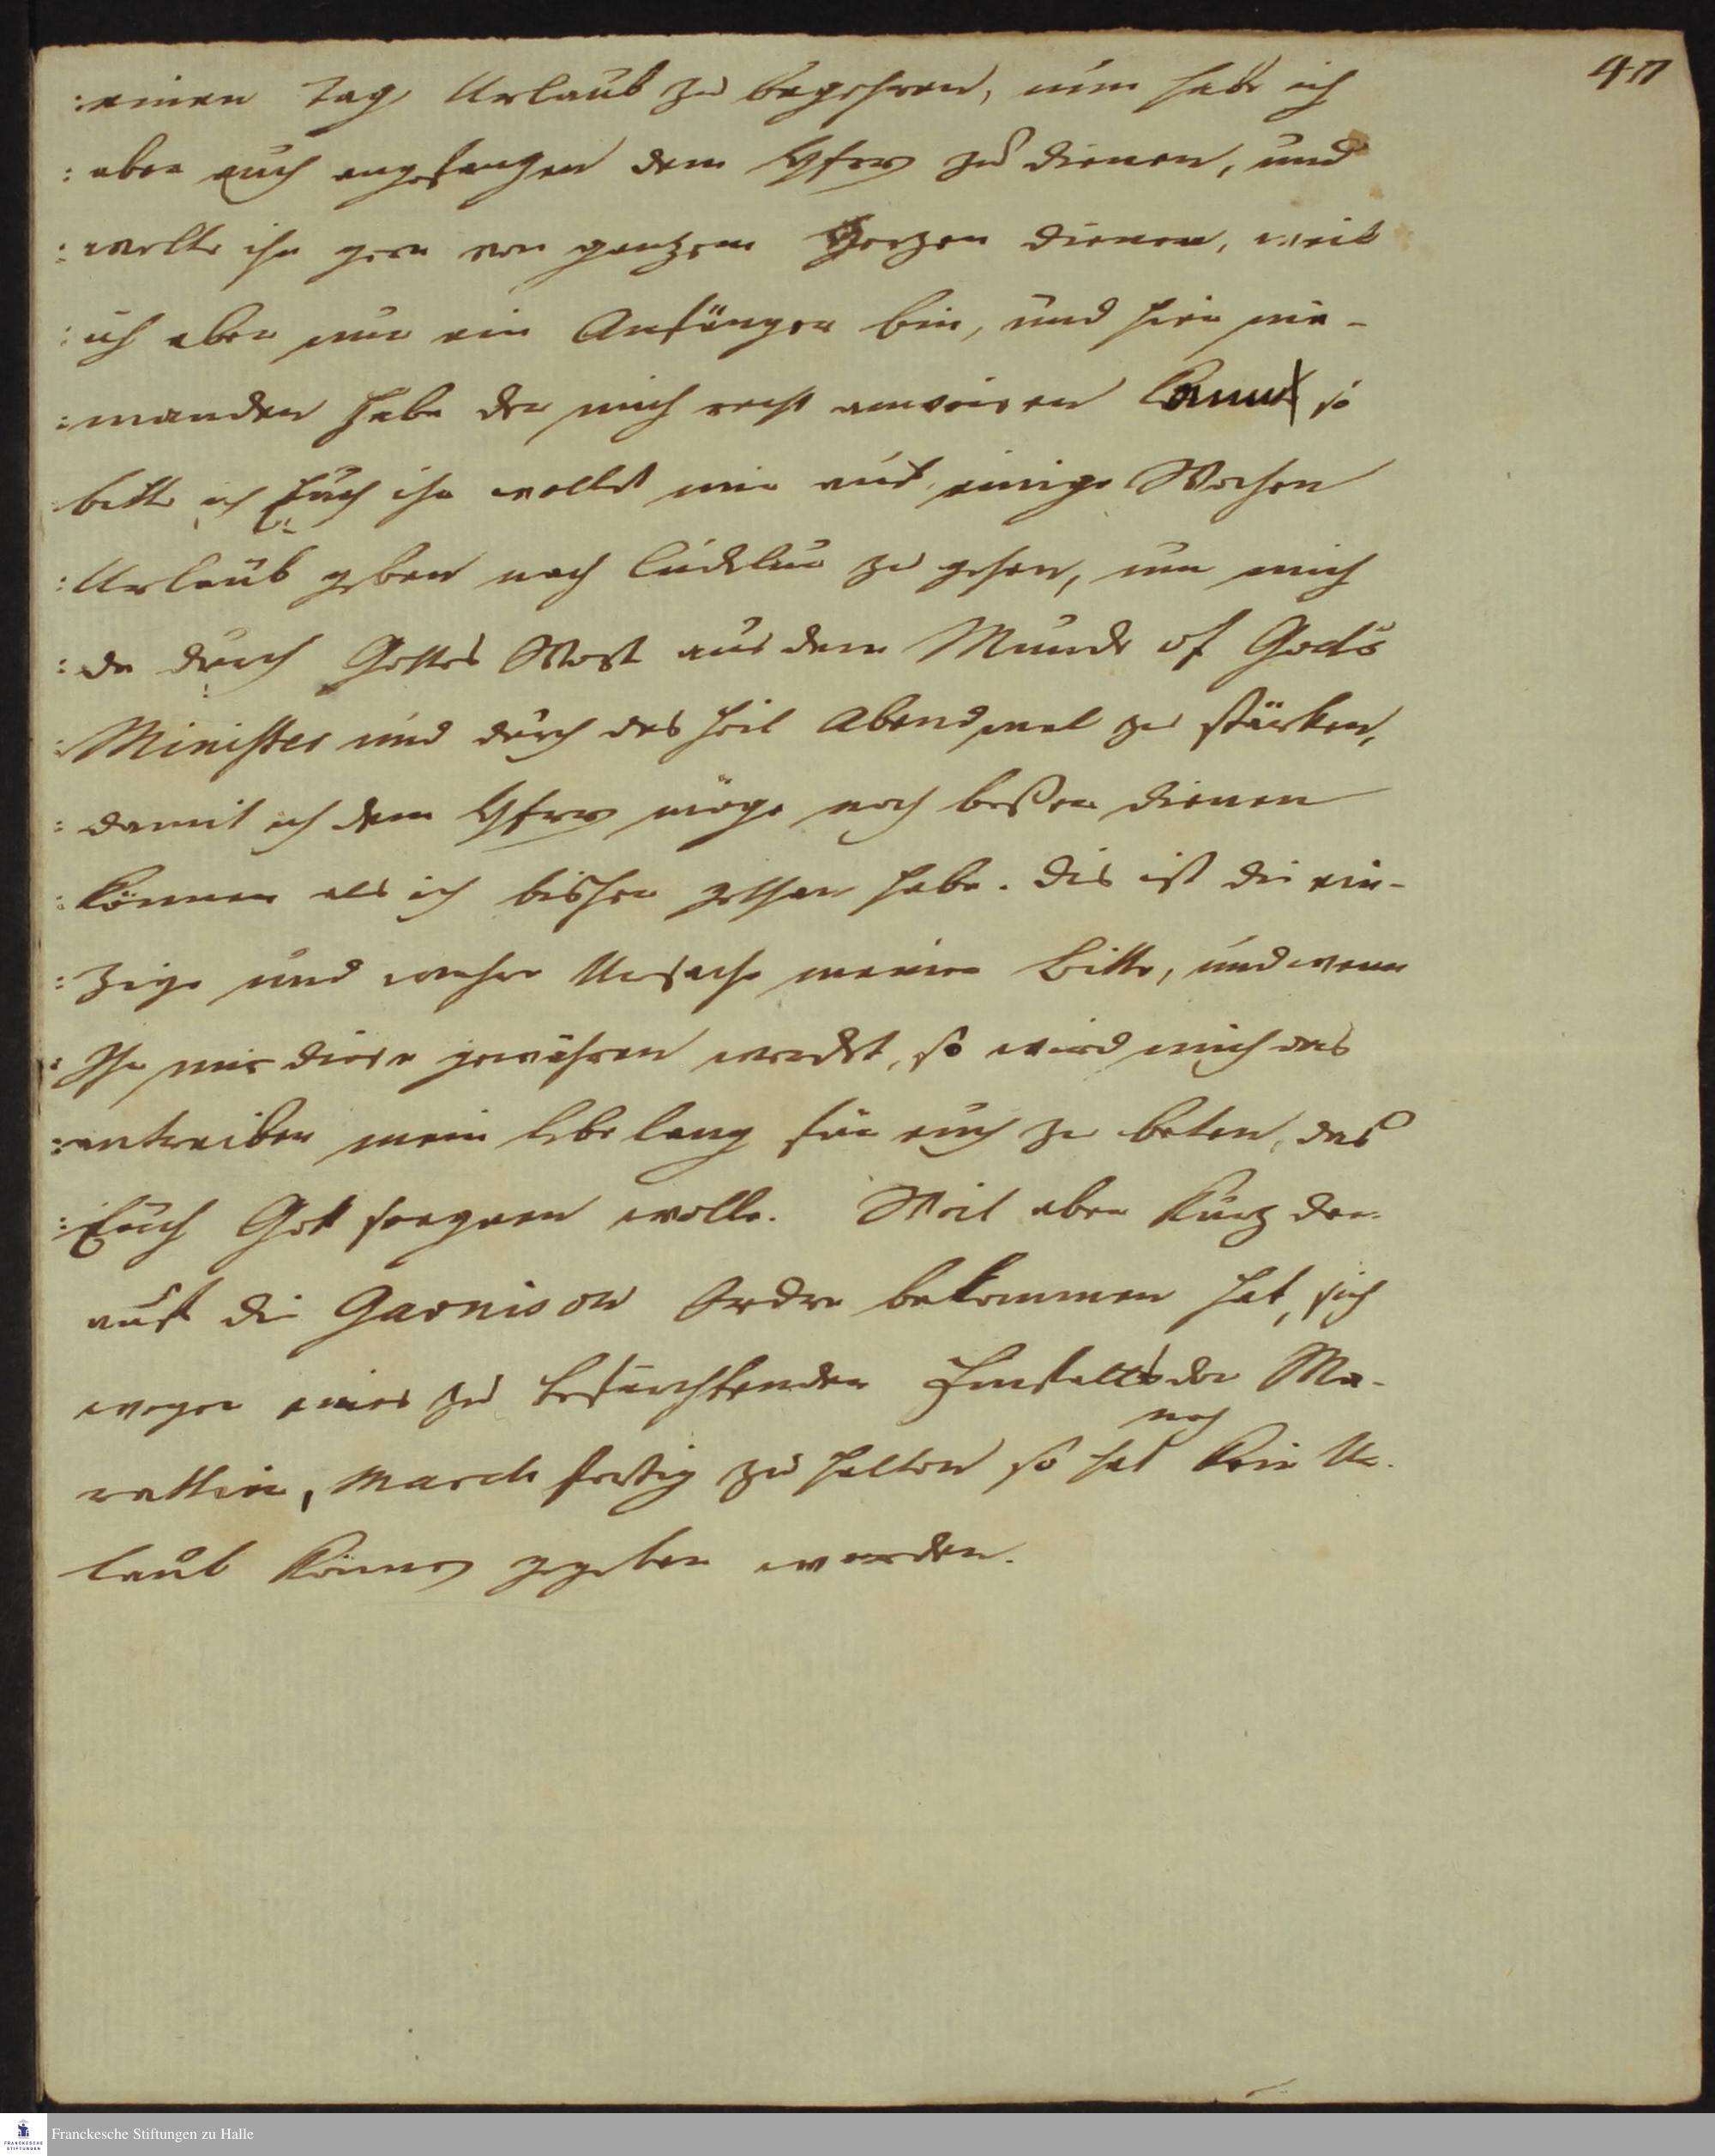 47
: einen Tag Urlaub zu begehren, nun habe ich
: aber auch angefangen dem HErrn zu dienen, und
: wollte ihm gern von ganzem Herzen dienen, weil
: ich aber nur ein Anfänger bin, und hier nie-
: manden habe der mich recht anweisen kann so
: bitte ich Euch ihr wollet mir auf einige Wochen
: Urlaub geben nach Cudelur zu gehen, um mich
: da durch Gottes Wort aus dem Munde of God's
: Minister und durch das heil Abendmal zu stärken,
: damit ich dem HErrn möge noch beßer dienen
: können als ich bisher gethan habe. Dis ist die ein-
: zige und wahre Ursache meiner Bitte, und wenn
: Ihr mir diese gewähren werdet, so wird mich das
: antreiben mein lebelang für euch zu beten, das
: Euch Gott seegnen wolle. Weil aber kurz dar-
auf die Garnison Ordre bekommen hat, sich
wegen eines zu befürchtenden Einfalls der Ma-
ratten, March fertig zu halten so hat noch kein Ur-
laub können gegeben werden.
Franckesche Stiftungen zu Halle